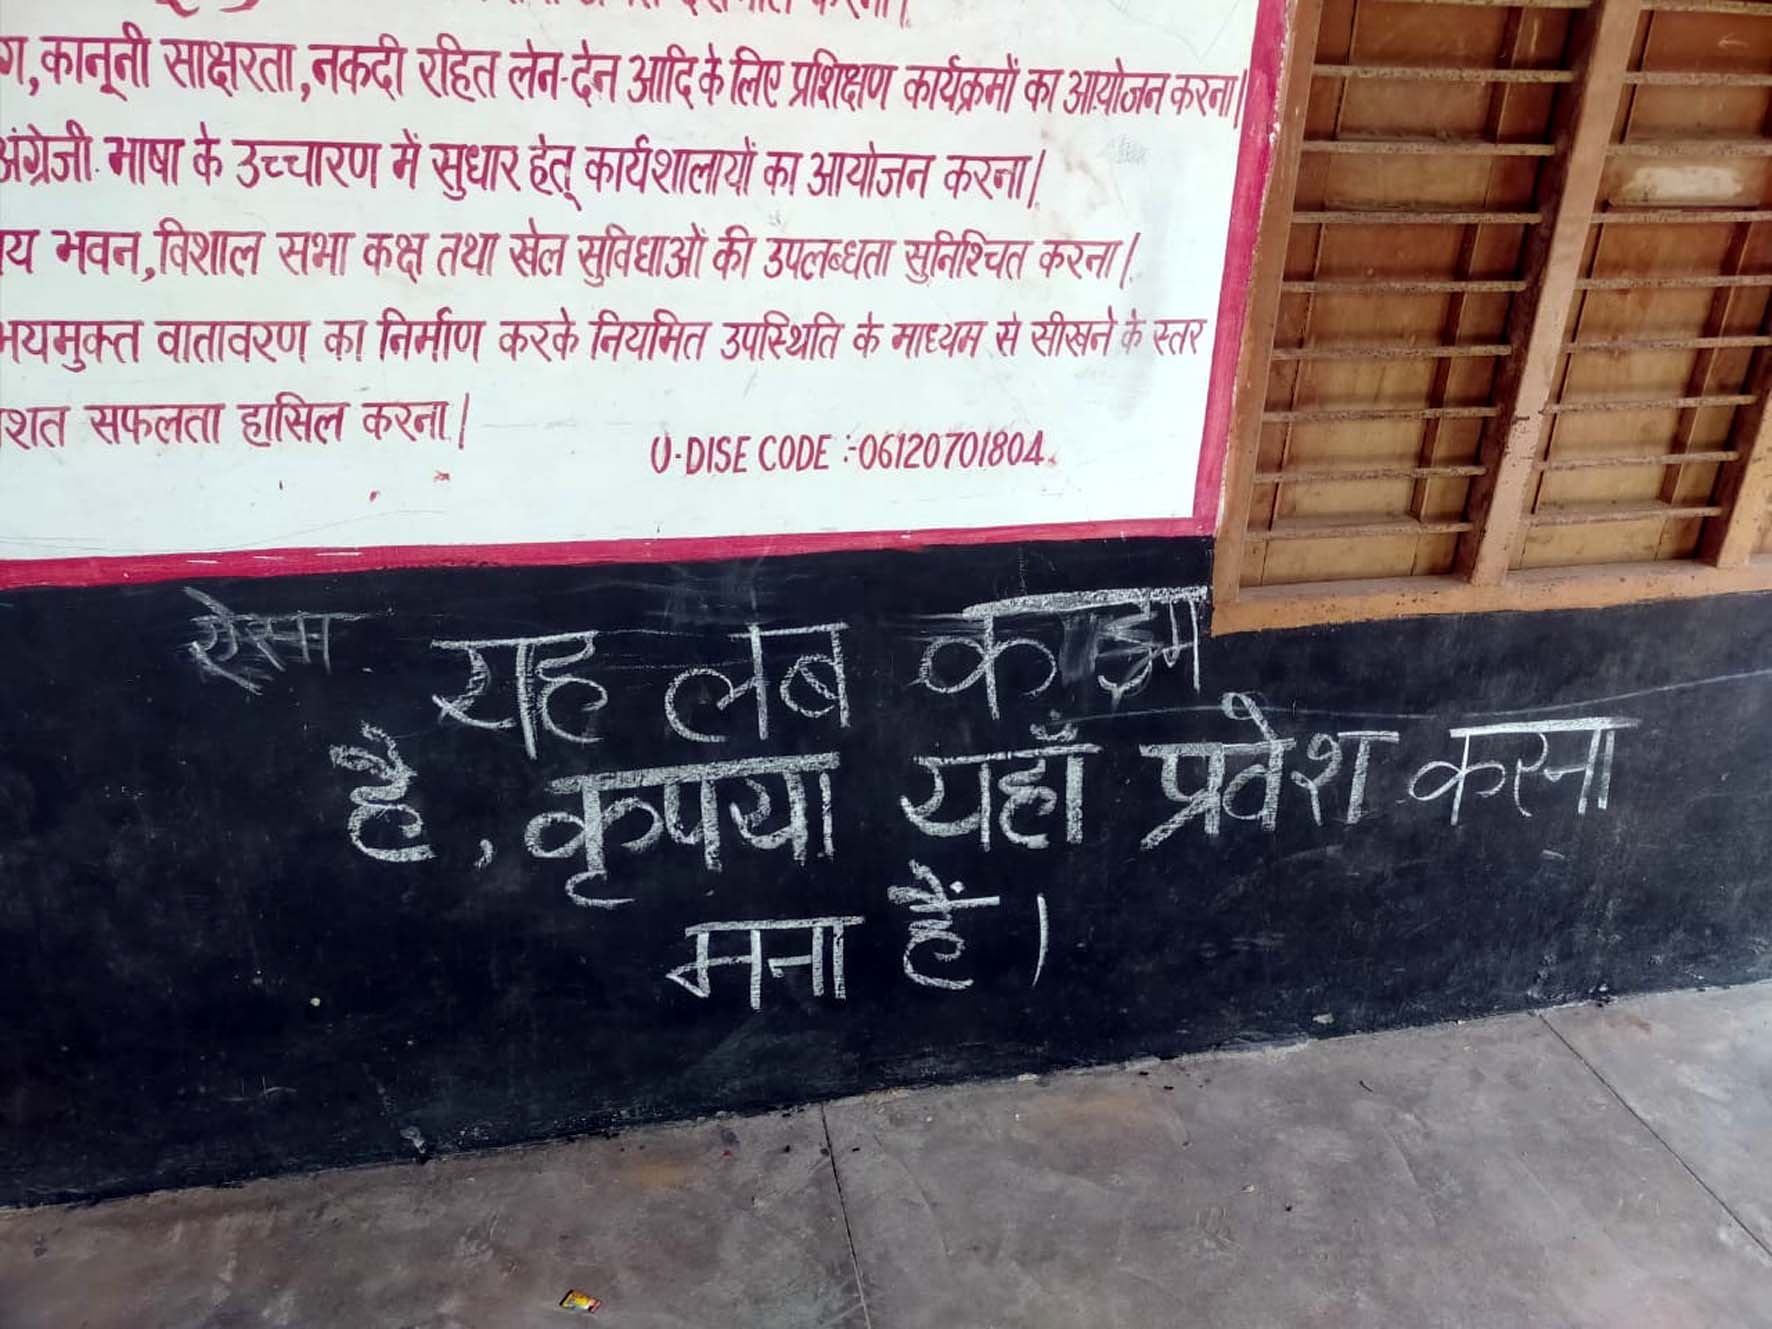 ग, कानूनी साक्षरता, नकदी रहित लेन-देन आदि के लिए प्रशिक्षण कार्यक्रमों का आयोजन करना।
अंग्रेजी भाषा के उच्चारण में सुधार हेतू कार्यशालायों का आयोजन करना।
य भवन, विशाल सभा कक्ष तथा खेल सुविधाओं की उपलब्धता सुनिश्चित करना।
भयमुक्त वातावरण का निर्माण करके नियमित उपस्थिति के माध्यम से सीखने के स्तर
शत सफलता हासिल करना।
U-DISE CODE :-06120701804.
राह लब क
है, कृपया यहाँ प्रवेश करना
मना हैं।